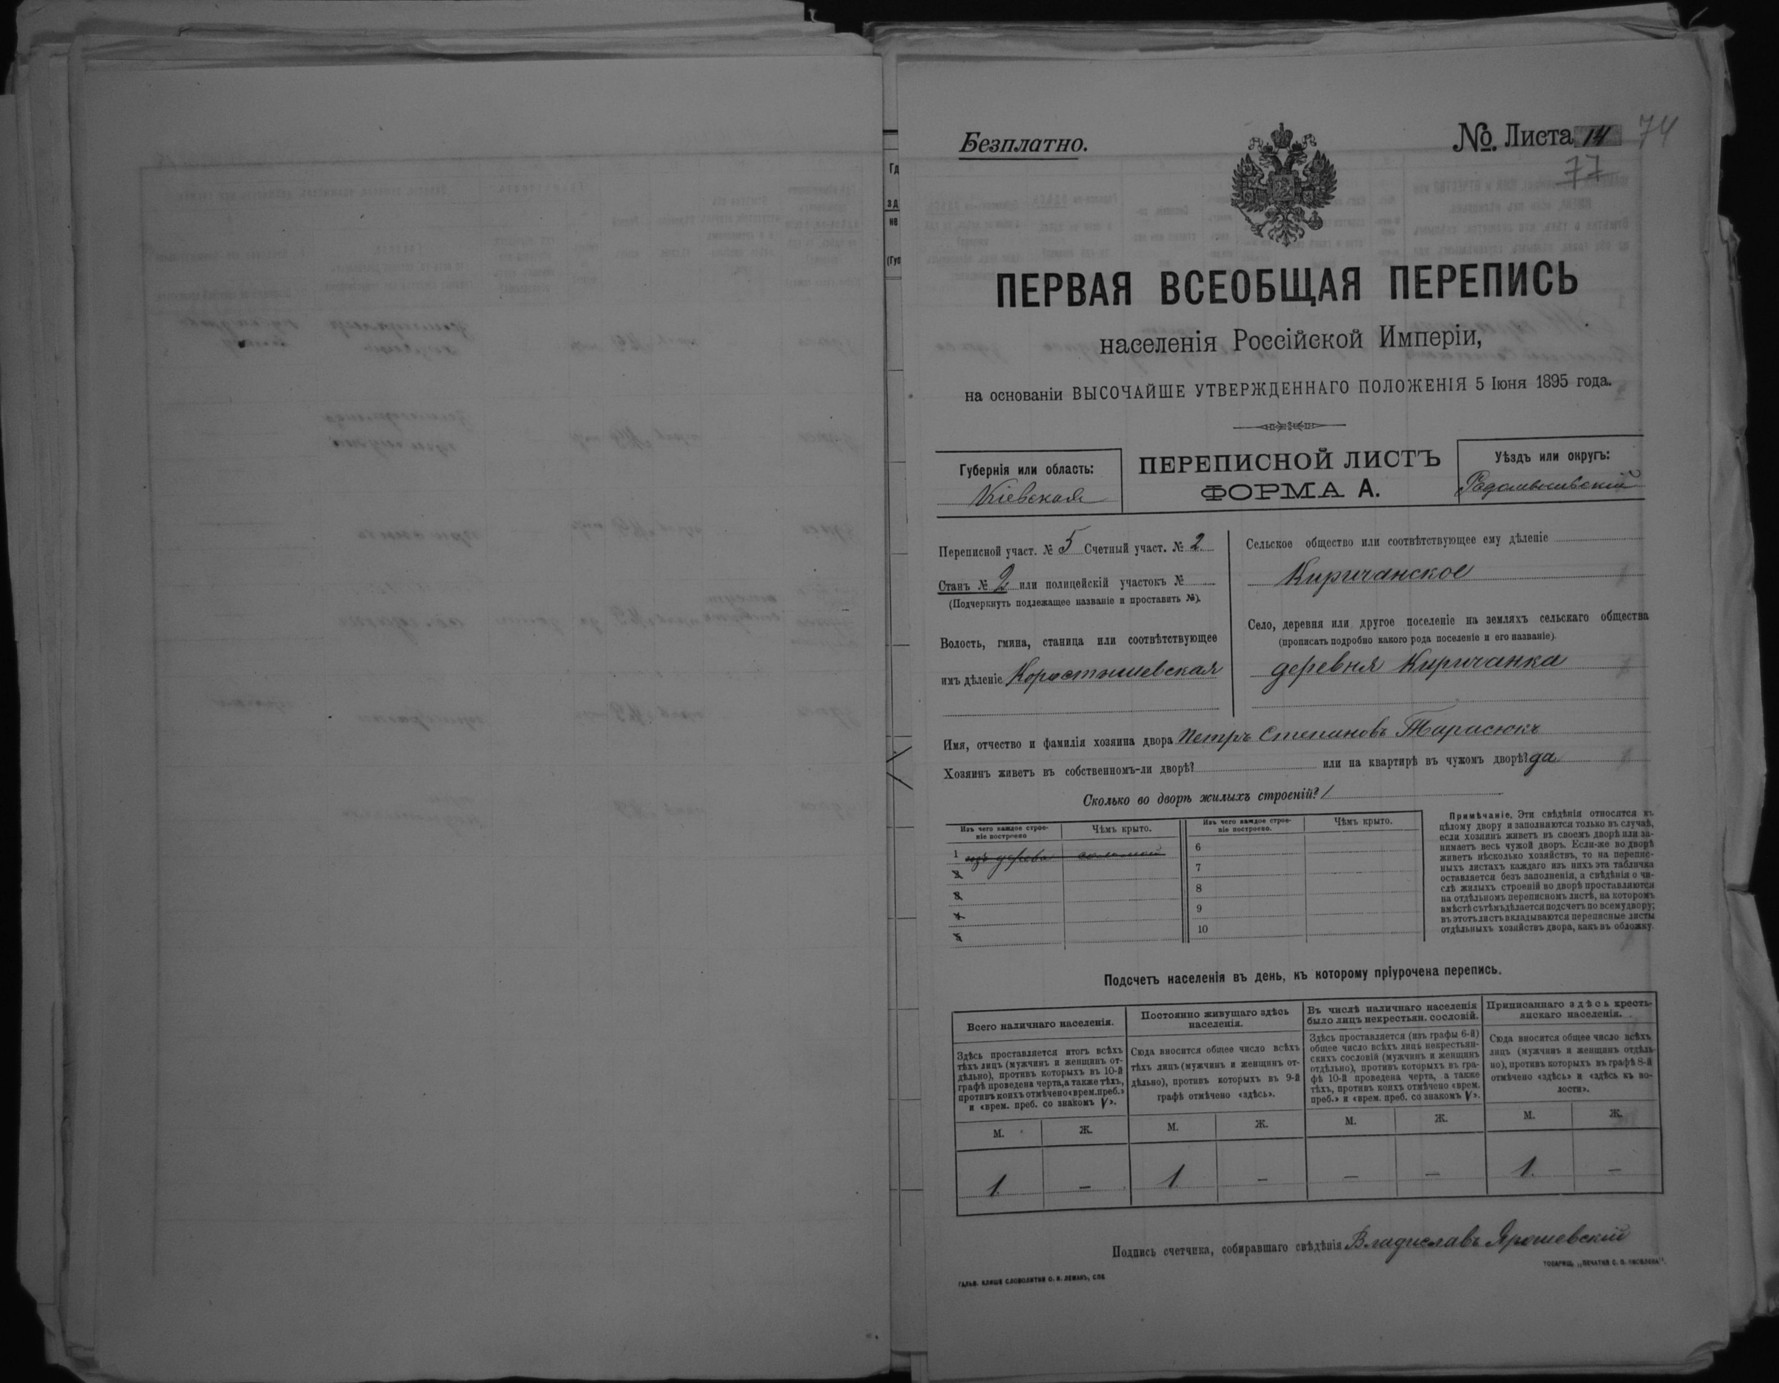 Безплатно.
№ Листа 14
74
77
ПЕРВАЯ ВСЕОБЩАЯ ПЕРЕПИСЬ
населенія Россійской Имперіи,
на основаніи ВЫСОЧАЙШЕ УТВЕРЖДЕННАГО ПОЛОЖЕНІЯ 5 Іюня 1895 года.
Губернія или область:
Кіевская
ПЕРЕПИСНОЙ ЛИСТЪ
ФОРМА А.
Уѣздъ или округъ:
Радомысльскій
Переписной участ. № 5 Счетный участ. № 2
Станъ № 2 или полицейскій участокъ №
(Подчеркнуть подлежащее названіе и проставить №).
Волость, гмина, станица или соотвѣтствующее
имъ дѣленіе Коростышевская
Сельское общество или соотвѣтствующее ему дѣленіе
Киричанское
Село, деревня или другое поселеніе на земляхъ сельскаго общества
(прописать подробно какого рода поселеніе и его названіе).
деревня Киричанка
Имя, отчество и фамилія хозяина двора Петръ Степановъ Тарасюкъ
Хозяинъ живетъ въ собственномъ-ли дворѣ? или на квартирѣ въ чужомъ дворѣ? да
Сколько во дворѣ жилыхъ строеній? 1
Изъ чего каждое строе-
ніе построено
Чѣмъ крыто.
Изъ чего каждое строе-
ніе построено.
Чѣмъ крыто.
1 изъ дерева соломой
2
3
4
5
6
7
8
9
10
Примѣчаніе. Эти свѣдѣнія относятся къ
цѣлому двору и заполняются только въ случаѣ,
если хозяинъ живетъ въ своемъ дворѣ или за-
нимаетъ весь чужой дворъ. Если-же во дворѣ
живетъ нѣсколько хозяйствъ, то на перепис-
ныхъ листахъ каждаго изъ нихъ эта табличка
оставляется безъ заполненія, а свѣдѣнія о чи-
слѣ жилыхъ строеній во дворѣ проставляются
на отдѣльномъ переписномъ листѣ, на которомъ
вмѣстѣ съ тѣмъ дѣлается подсчетъ по всему двору;
въ этотъ листъ вкладываются переписные листы
отдѣльныхъ хозяйствъ двора, какъ въ обложку.
Подсчетъ населенія въ день, къ которому пріурочена перепись.
Всего наличнаго населенія.
Здѣсь проставляется итогъ всѣхъ
тѣхъ лицъ (мужчинъ и женщинъ от-
дѣльно), противъ которыхъ въ 10-й
графѣ проведена черта, а также тѣхъ,
противъ коихъ отмѣчено «врем. преб.»
и «врем. преб. со знакомъ V».
Постоянно живущаго здѣсь
населенія.
Сюда вносится общее число всѣхъ
тѣхъ лицъ (мужчинъ и женщинъ от-
дѣльно), противъ которыхъ въ 9-й
графѣ отмѣчено «здѣсь».
Въ числѣ наличнаго населенія
было лицъ некрестьян. сословій.
Здѣсь проставляется (изъ графы 6-й)
общее число всѣхъ лицъ некрестьян-
скихъ сословій (мужчинъ и женщинъ
отдѣльно), противъ которыхъ въ гра-
фѣ 10-й проведена черта, а также
тѣхъ, противъ коихъ отмѣчено «врем.
преб.» и «врем. преб. со знакомъ V».
Приписаннаго здѣсь кресть-
янскаго населенія.
Сюда вносится общее число всѣхъ
лицъ (мужчинъ и женщинъ отдѣль-
но), противъ которыхъ въ графѣ 8-й
отмѣчено «здѣсь» и «здѣсь къ во-
лости».
М. Ж. М. Ж. М. Ж. М. Ж.
1. — 1 — — — 1. —
Подпись счетчика, собиравшаго свѣдѣнія Владиславъ Ярошевскій
ГАЛЬВ. КЛИШЕ СЛОВОЛИТНИ О. И. ЛЕМАНЪ, СПБ